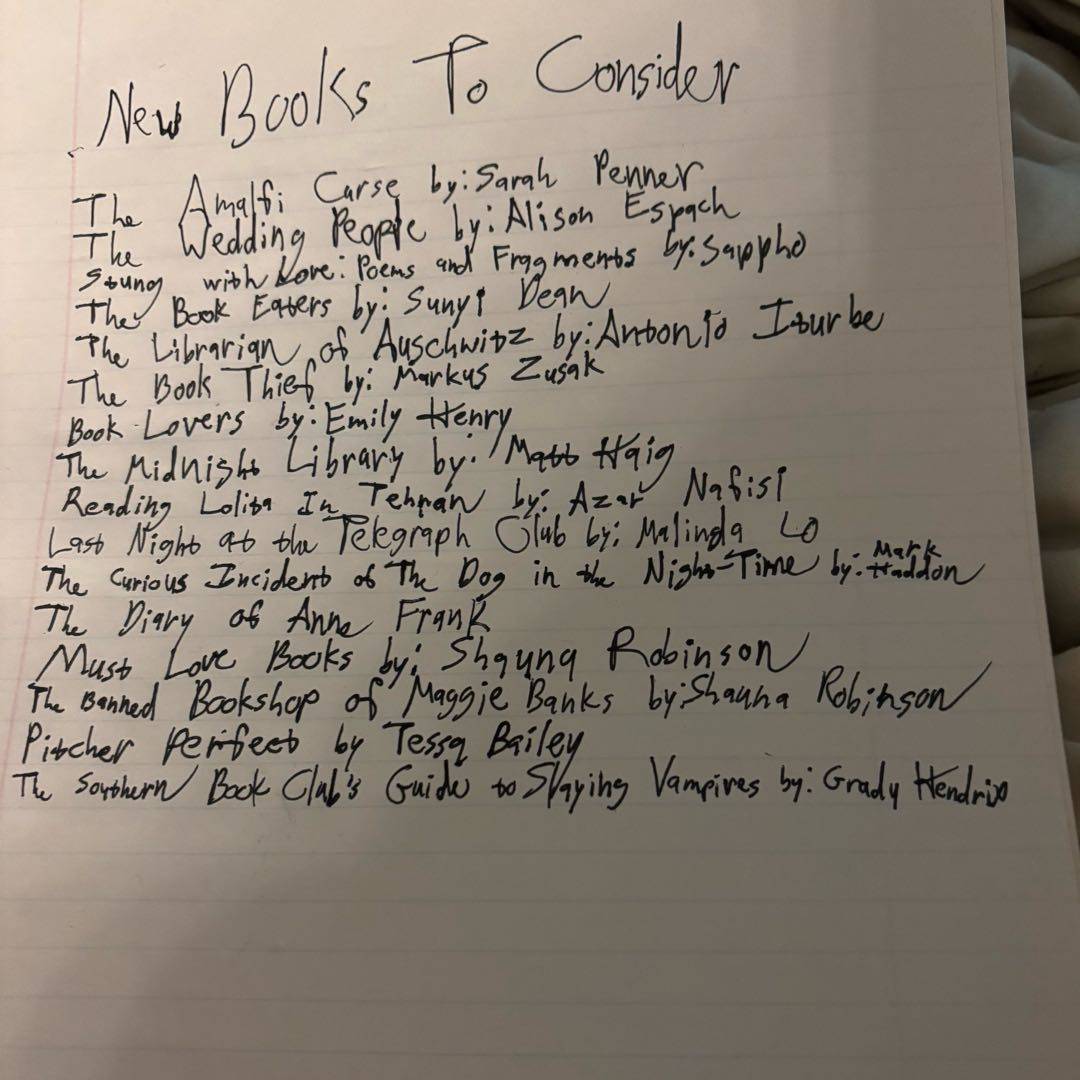 New Books To Consider
The Amalfi Curse by: Sarah Penner
The Wedding People by: Alison Espach
Stung with Love: Poems and Fragments by: Sappho
The Book Eaters by: Sunyi Dean
The Librarian of Auschwitz by: Antonio Iturbe
The Book Thief by: Markus Zusak
Book Lovers by: Emily Henry
The Midnight Library by: Matt Haig
Reading Lolita In Tehran by: Azar Nafisi
Last Night at the Telegraph Club by: Malinda Lo
The Curious Incident of The Dog in the Night-Time by: Mark Haddon
The Diary of Anne Frank
Must Love Books by: Shauna Robinson
The Banned Bookshop of Maggie Banks by: Shauna Robinson
Pitcher Perfect by Tessa Bailey
The Southern Book Club's Guide to Slaying Vampires by: Grady Hendrix